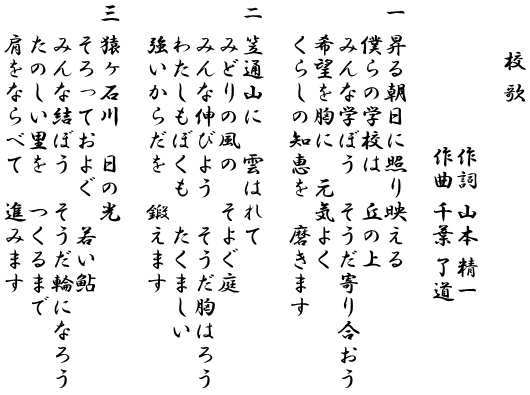 校歌
作詞 山本 精一
作曲 千葉 了道
一 昇る朝日に照り映える
僕らの学校は 丘の上
みんな学ぼう そうだ寄り合おう
希望を胸に 元気よく
くらしの知恵を 磨きます
二 笠通山に 雲はれて
みどりの風の そよぐ庭
みんな伸びよう そうだ胸はろう
わたしもぼくも たくましい
強いからだを 鍛えます
三 猿ヶ石川 日の光
そろっておよぐ 若い鮎
みんな結ぼう そうだ輪になろう
たのしい里を つくるまで
肩をならべて 進みます